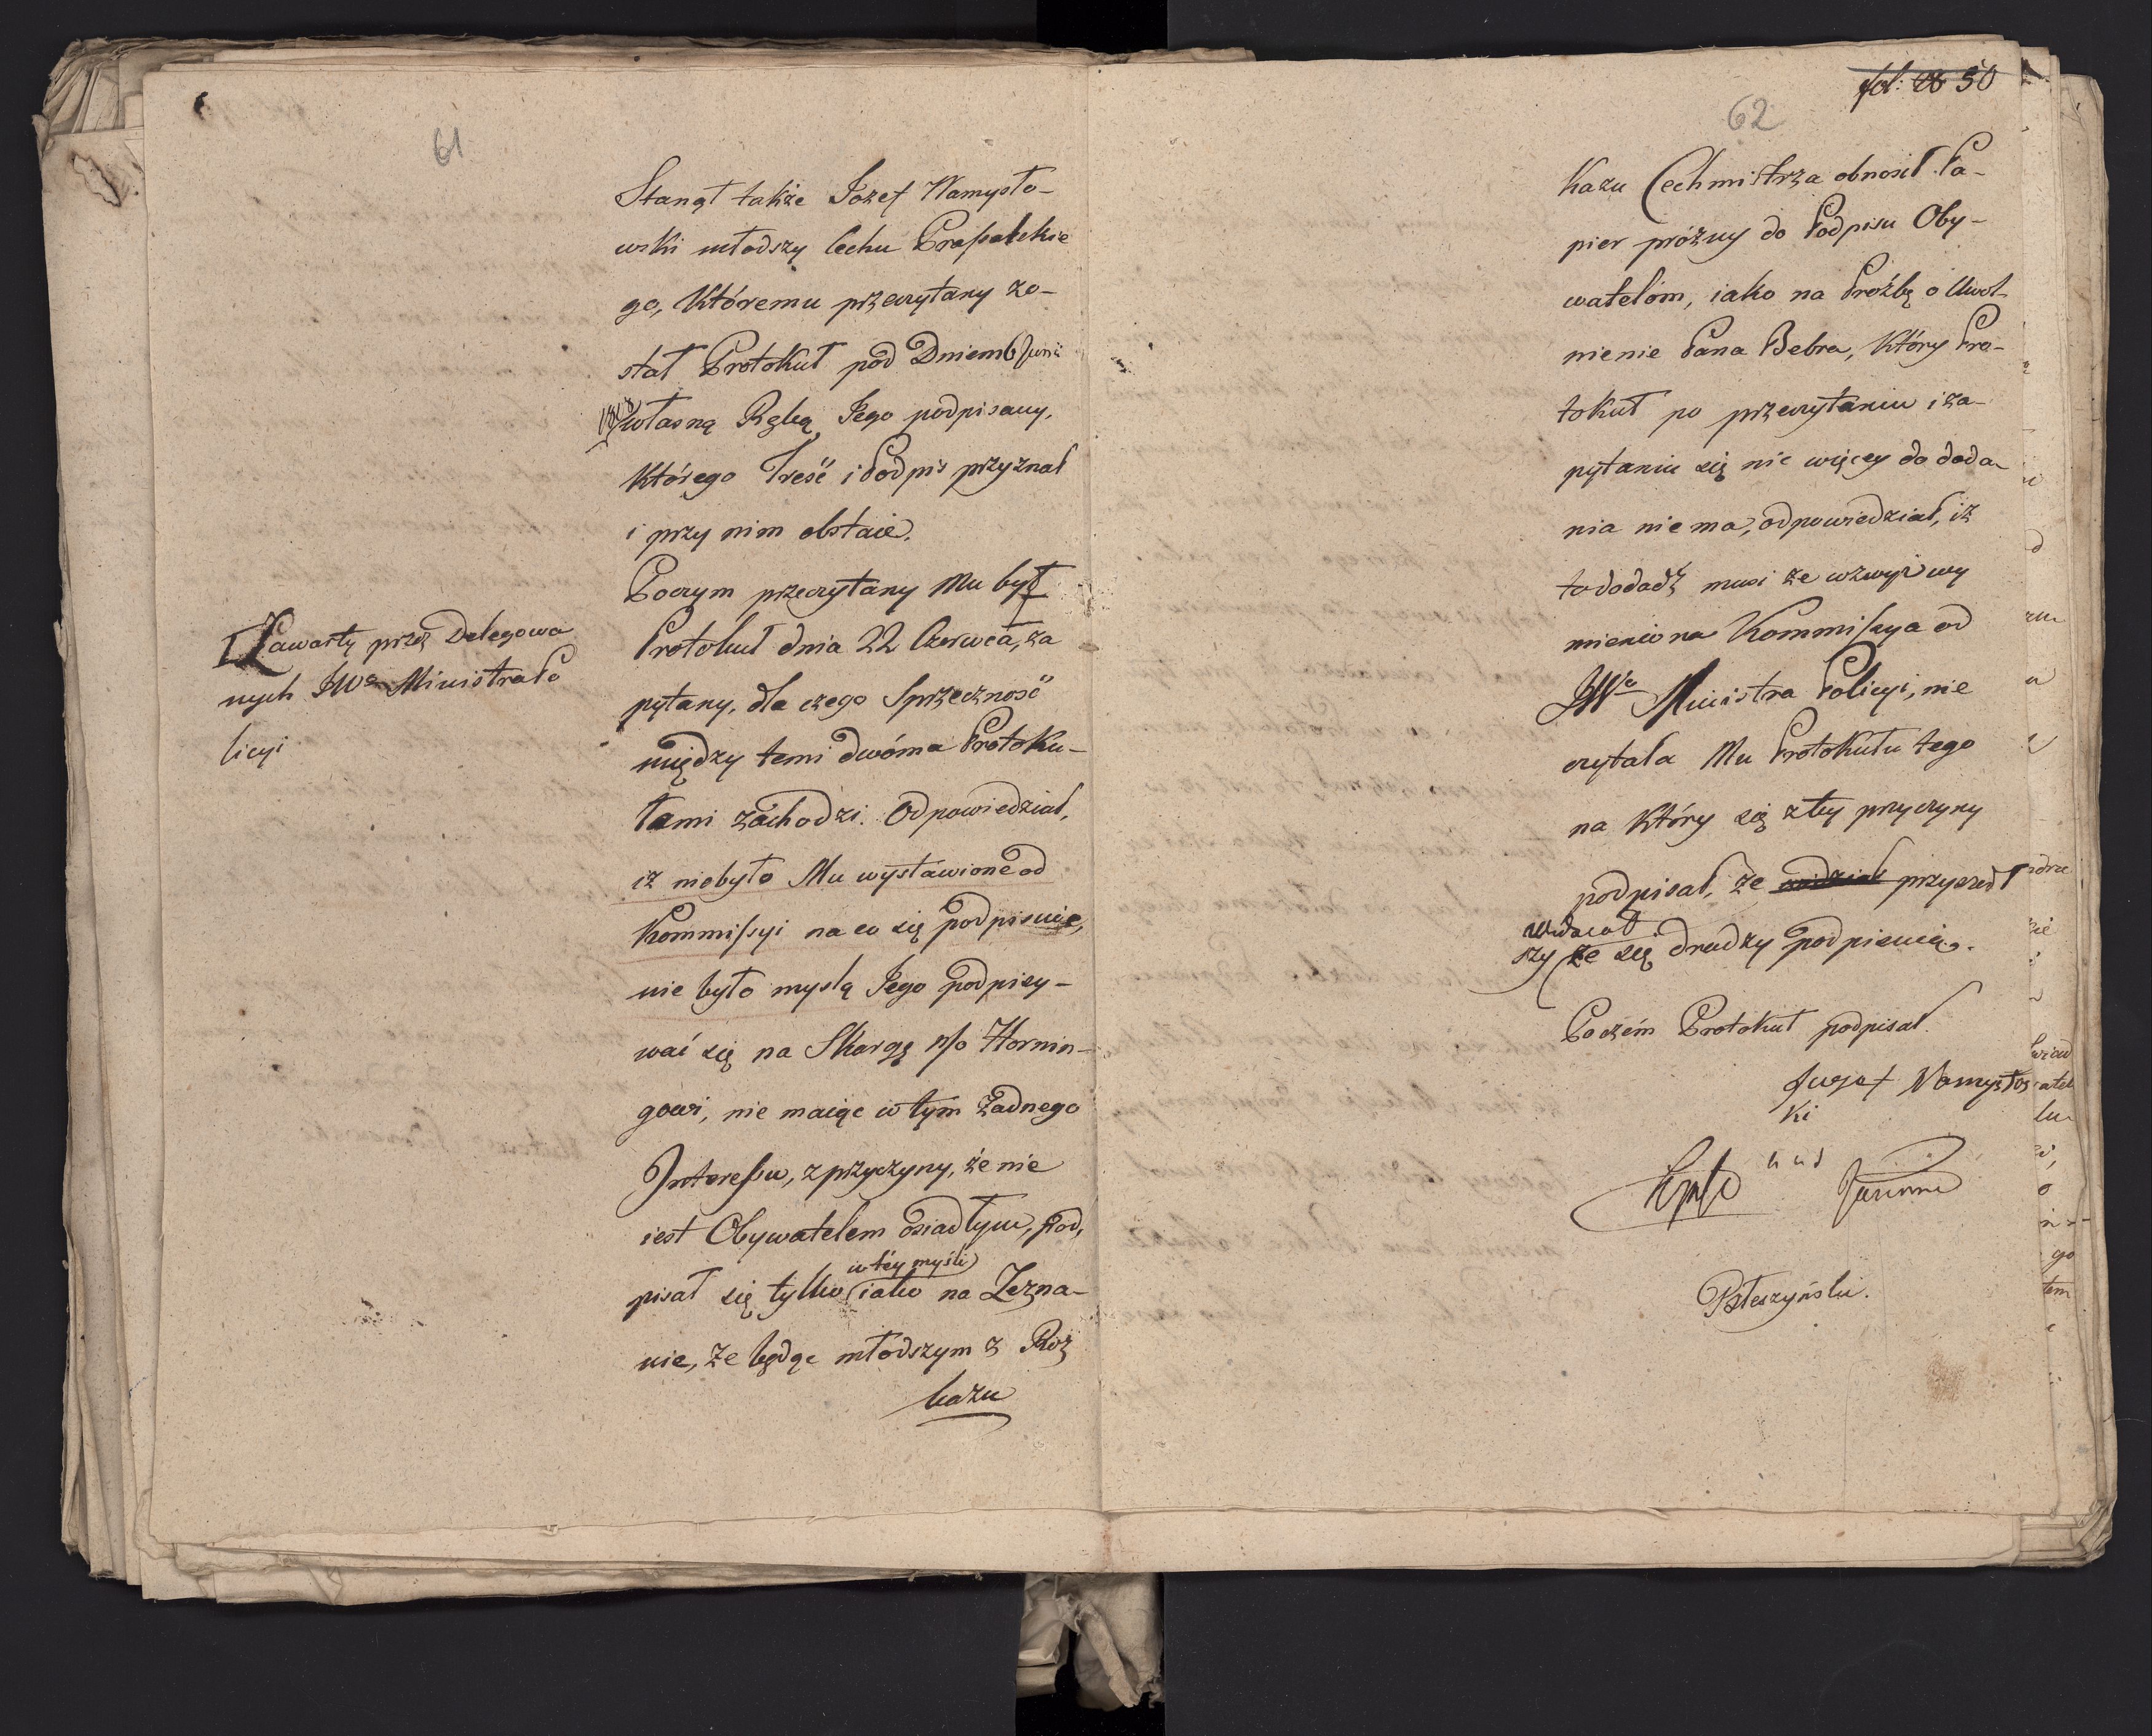 61
Stanął także Jozef Namysło-
wski młodszy Cechu Prasałskie
go, Któremu przeczytany zo-
stał Protokuł pod Dniem 6 Junii
własną Ręką Jego podpisany,
którego Treść i Podpis przyznał
i przy nim obstaie.
Poczym przeczytany Mu był
Zawarty przez Delegowa
nych JWo Ministra Po
licyi
Protokuł dnia 22 Czerwca, za
pytany, dla czego Sprzeczność
między temi dwóma Protoku-
łami zachodzi. Odpowiedział,
iż niebyło Mu wystawione od
Kommissyi na co się podpisuie,
nie było myslą Jego podpisy-
wać się na Skargę p/o Hornin-
gowi, nie maiąc w tym żadnego
Interessu, z przyczyny, że nie
iest Obywatelem osiadłym, pod,
w téy myśli
pisał się tylko iako na Zezna-
nie, że będąc młodszym z Roz
kazu
fol: 50
62
kazu Cechmistrza obnosił Pa-
pier próżny do Podpisu Oby-
watelóm, iako na Proźbę o Uwol
nienie Pana Bebra, Który Pro-
tokuł po przeczytaniu i za-
pytaniu się nic więcey do doda-
nia nie ma, odpowiedział, iż
to dodadź musi że wzwyż wy
mieniona Kommissya od
JWo Ministra Policyi, nie
czytała Mu Protokułu tego
na Który się z tey przyczyny
podpisał, że widział przyszedł
widział
szy że się drudzy podpisuią.
Poczém Protokuł podpisał.
Juzef Namysłos
ki